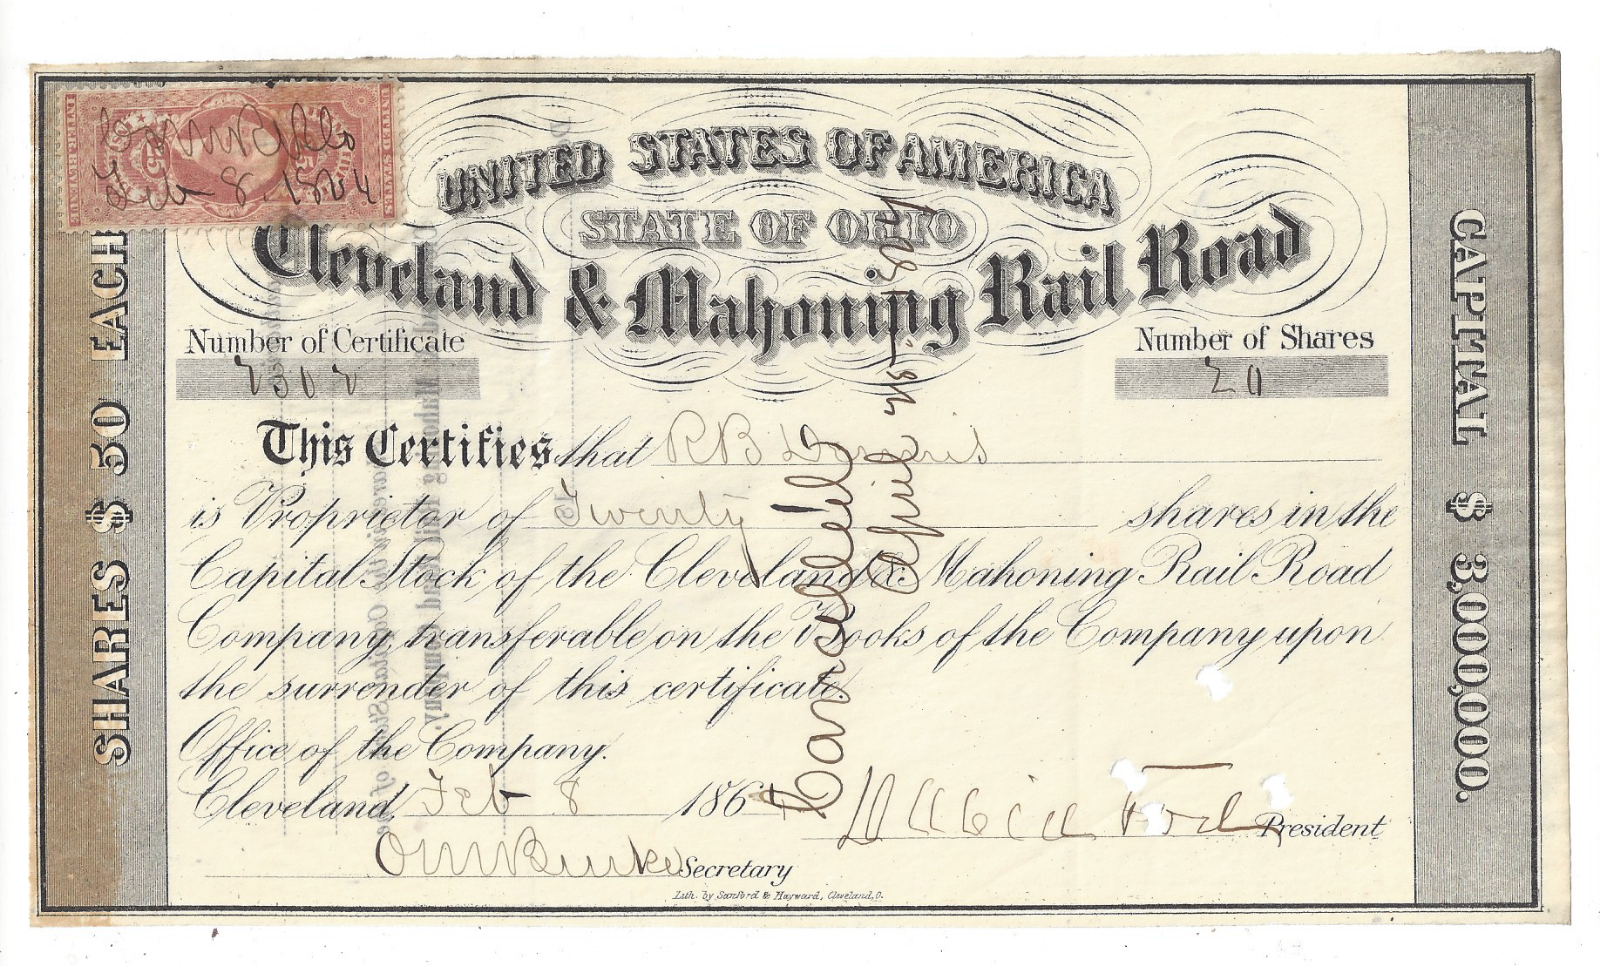 UNITED STATES INTER. REVENUE
25
Feb 8. 1864
UNITED STATES OF AMERICA
STATE OF OHIO
Cleveland & Mahoning Rail Road
Number of Certificate
2302
Number of Shares
20
This Certifies that R B Dennis
is Proprietor of Twenty shares in the
Capital Stock of the Cleveland & Mahoning Rail Road
Company, transferable on the Books of the Company upon
the surrender of this certificate.
Office of the Company.
Cleveland, Feb 8 1864
President
Secretary
Lith. by Sanford & Hayward, Cleveland, O.
SHARES $ 50 EACH
CAPITAL $ 3,000,000.
Cancelled
April